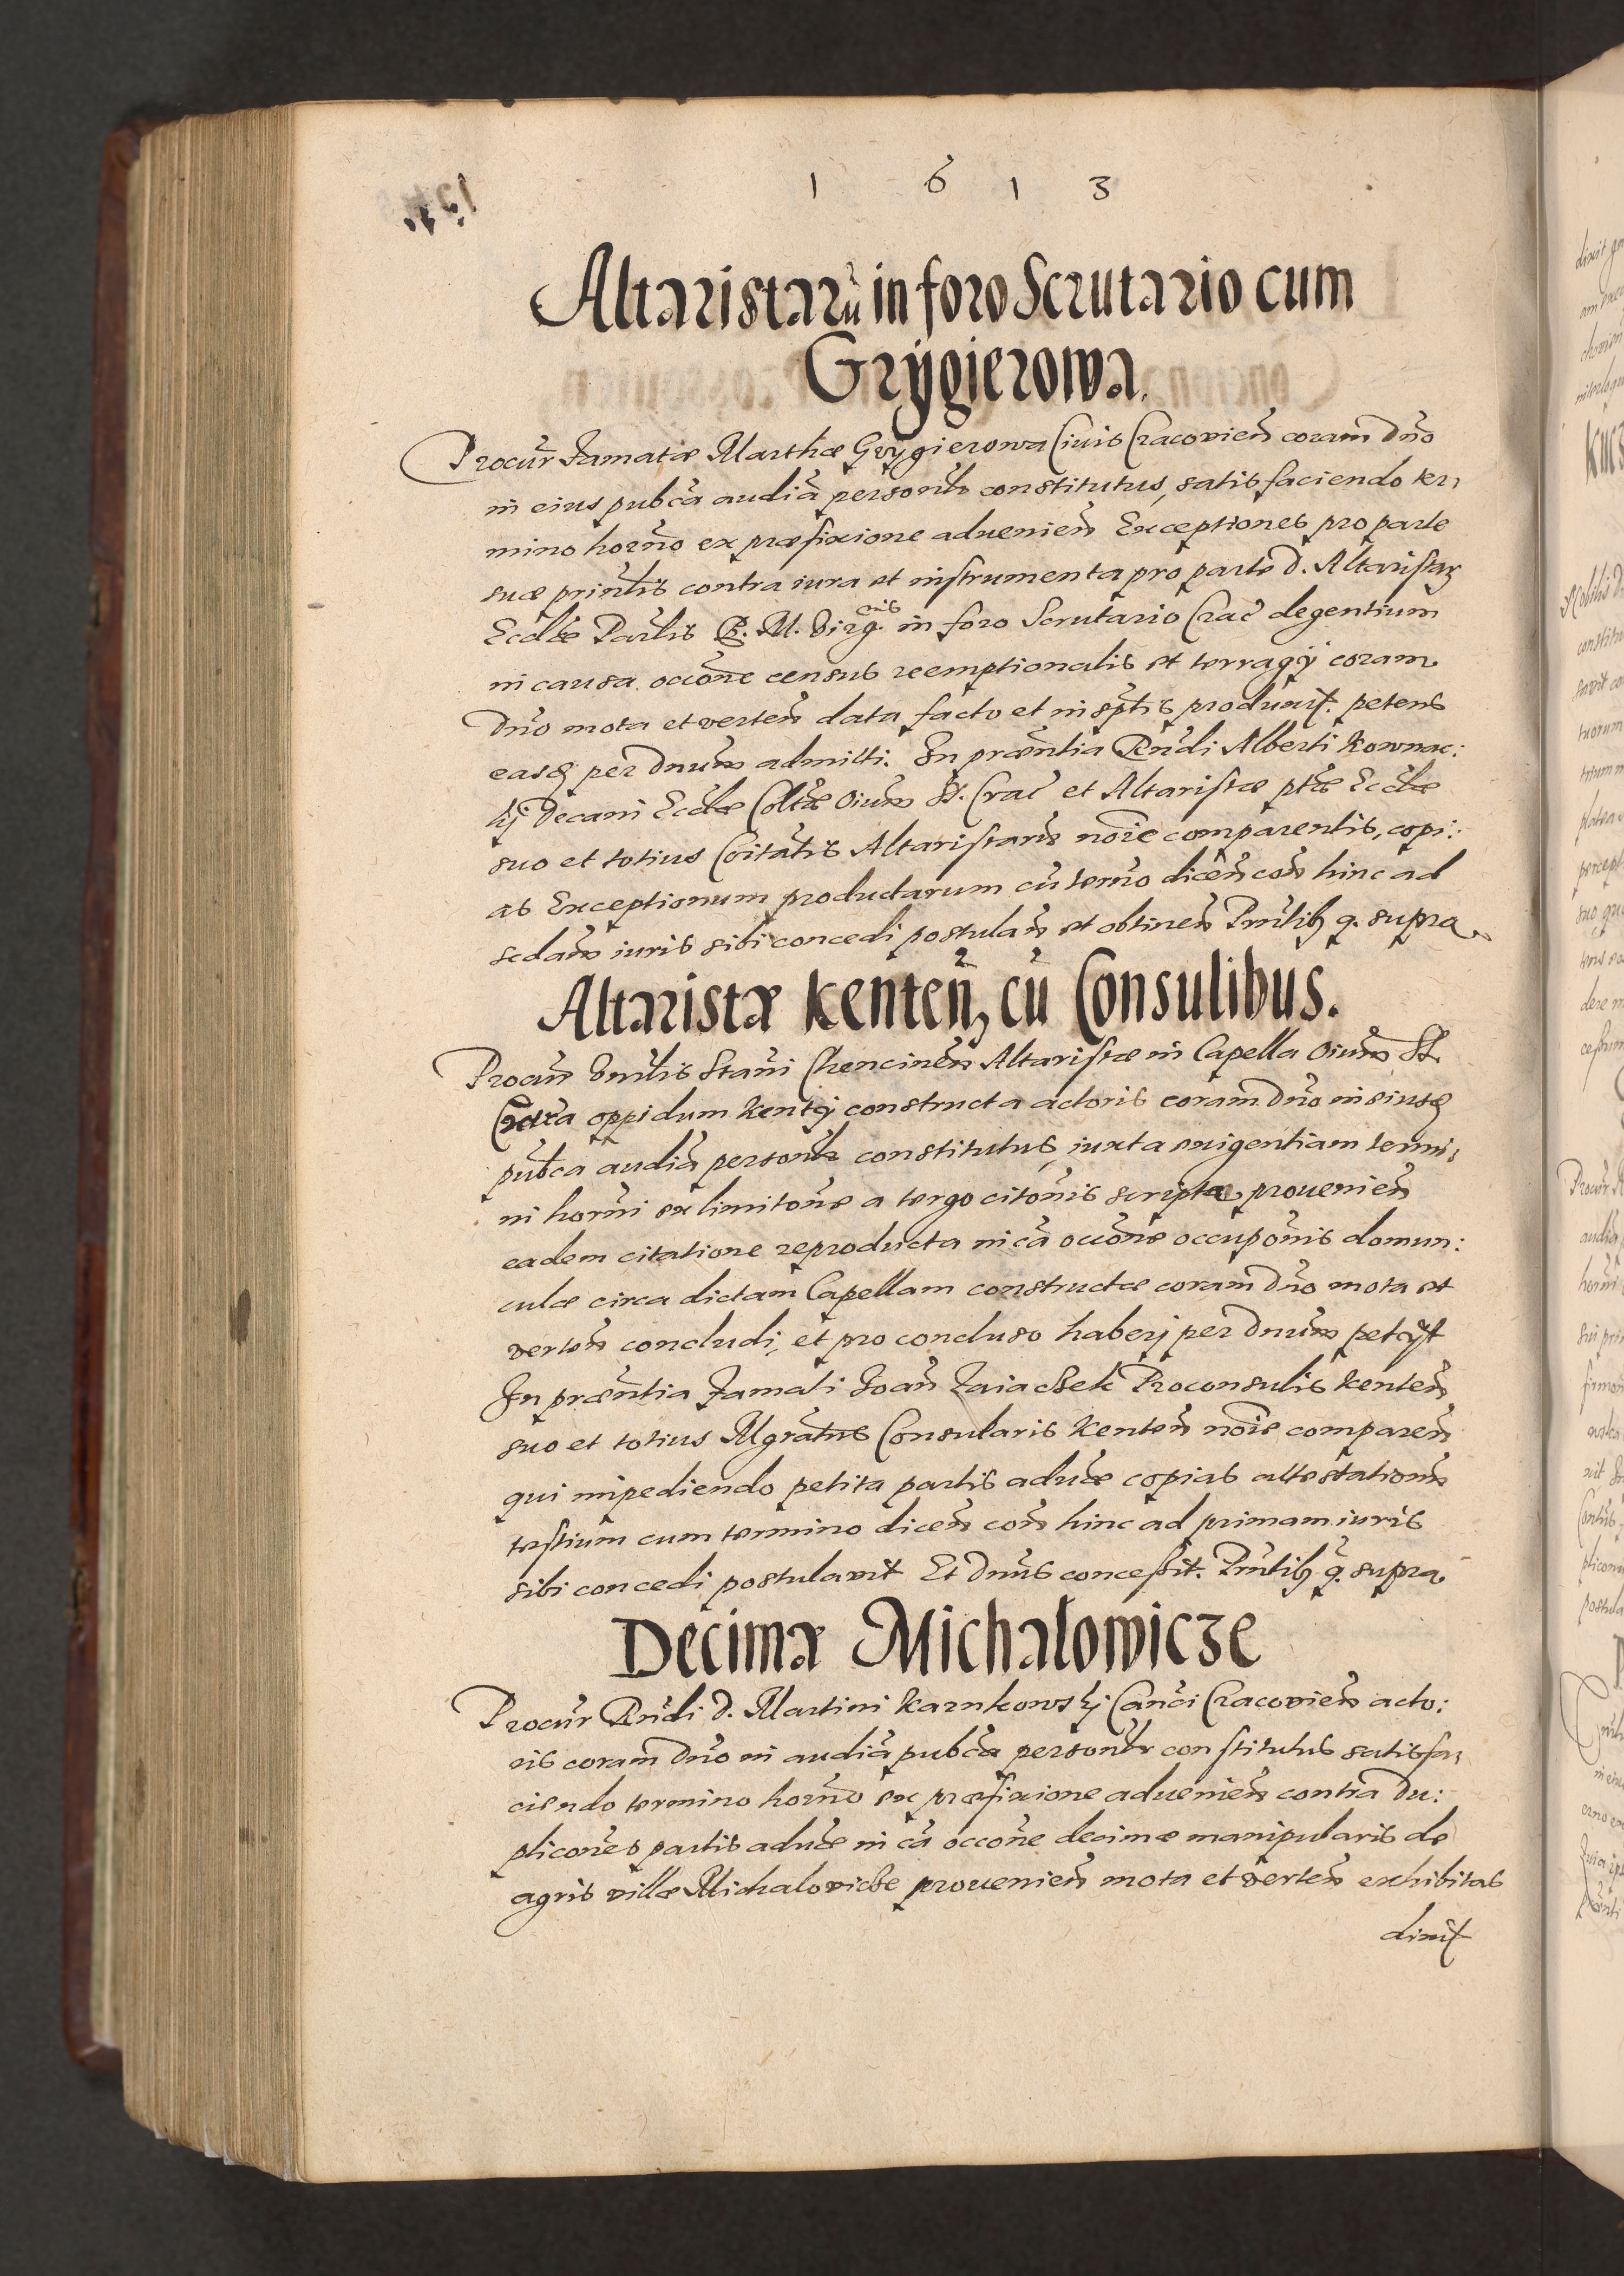 1 6 1 3
Altaristarũ in foro Scrutario cum
Grÿgierowa.
Procur̃ Famatæ Marthæ Grÿgierowa Civis Cracovień coram Dño
in eius pubca audiã personlr constitutus, satisfaciendo ter,
mino horño ex præfixione adveniẽn Exceptiones pro parte
suæ prinlis contra iura et instrumenta pro parte D. Altaristarz
Eccliæ Parlis B. M. Virg.inis in foro Scrutario Crac̃ degentium
in causa occõne census reemptionalis et terragÿ coram
Dño mota et verteñ data facto et in sptis produxit. petens
easq̃ per Dnum admitti. In præntia Rñdi Alberti Kownac:
kj Decani Eccliæ Coltæ Oium SS. Crac̃ et Altaristæ ptæ Eccliæ
suo et totius Coitatis Altaristarum noĩe comparentis, copi:
as Exceptionum productarum cũ termo diceñ coñ hinc ad
sedam iuris sibi concedi postulañ et obtineñ Prñtibꝫ q. supra
Altaristæ Kenteñ, cũ Consulibus.
Procur̃ Honlis Stani Chencineñ Altaristæ in Capella Oium SS.
Extra oppidum Kentÿ constructa actoris coram Dño in eiusq̃
pubca audiã personlr constitutus, iuxta exigentiam termi,
ni horni ex limitone a tergo citõnis scripta provenieñ
eadem citatione reproducta in cã occõne occupõnis domun:
culæ circa dictam Capellam constructæ coram Dño mota et
verteñ concludi, et pro concluso haberj per Dnum petÿt
In præntia Famati Joañ Zaiaczek Proconsulis Kenteñ
suo et totius Mgratus Consularis Kenteñ noĩe compareñ
qui impediendo petita partis aduersæ copias attestationum
testium cum termino diceñ coñ hinc ad primam iuris
sibi concedi postulavit Et Dnus concessit. Prñtibꝫ q̃. supra
Decimæ Michalowicze
Procur̃ Rñdi D. Martini Karnkowskj Canci Cracovień acto:
ris coram Dño in audiã pubca personlr constitutus satisfa,
ciendo termino horño ex præfixione adveniẽn contra Du:
plicones partis aduersæ in cã occõne decimæ manipularis de
agris villæ Michalovicze provenieñ mota et verteñ exhibitas
dixit